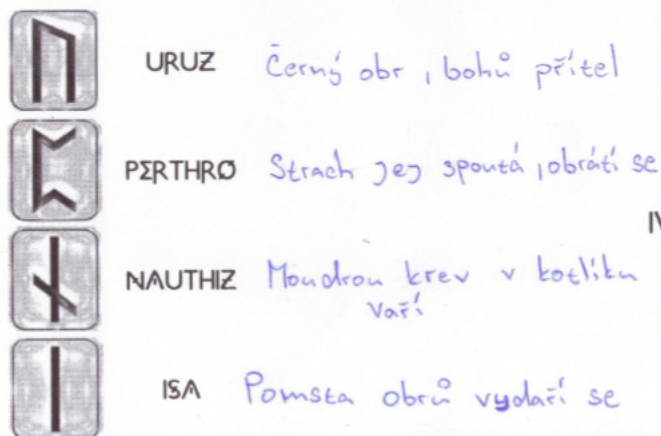 URUZ Černý obr, bohů přítel
PERTHRO Strach jej spoutá, obrátí se
IV
NAUTHIZ Moudrou krev v kotlíku
vaří
ISA Pomsta obrů vydaří se